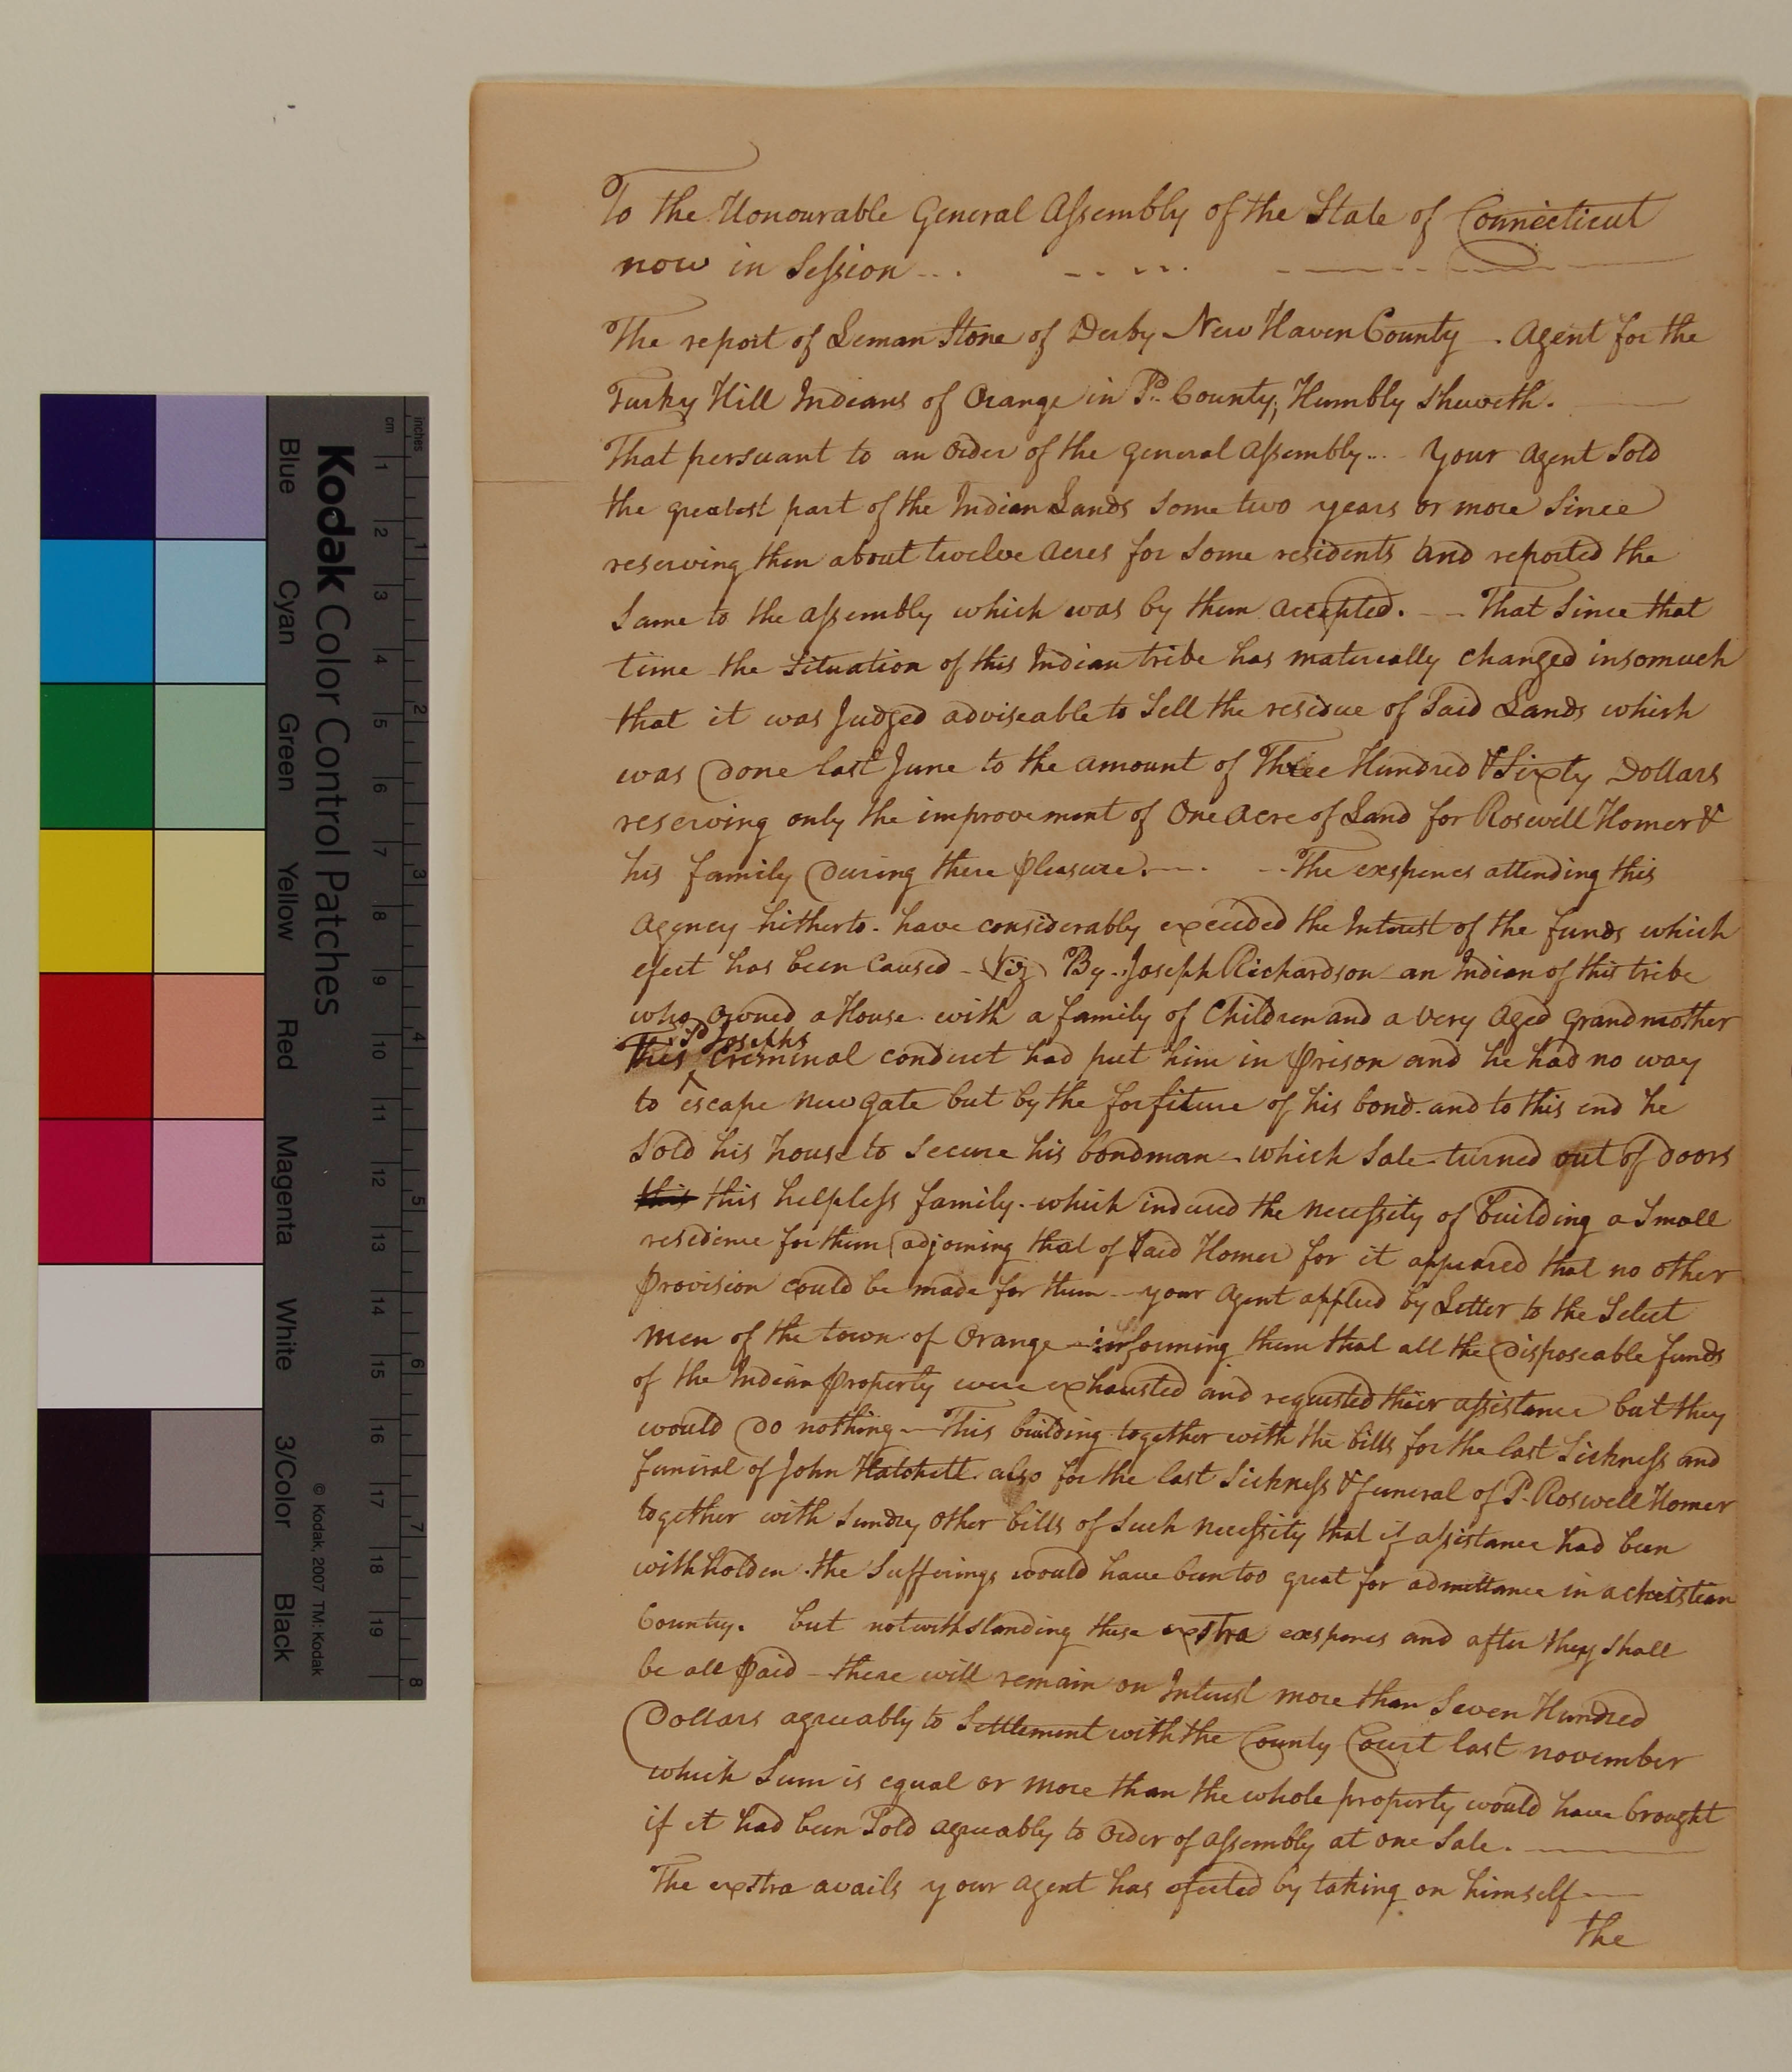 To the Honourable General Assembly of the State of Connecticut
now in Session
The report of Leman Stone of Derby New Haven County - Agent for the
Turky Hill Indians of Orange in Sd. County; Humbly Sheweth.
That persuant to an order of the general assembly... your agent Sold
the greatest part of the Indian Lands Some two years or more Since
reserving then about twelve acres for Some residents and reported the
Same to the assembly which was by them accepted. -- That Since that
time the Situation of this Indian tribe has materially changed insomuch
that it was Judged adviseable to Sell the residue of Said Lands which
was done last June to the amount of Three Hundred & Sixty Dollars
reserving only the improvement of One acre of Land for Roswell Homer &
his family During there pleasure. -- The exspences attending this
agency hitherto. have considerably exceeded the Interest of the funds which
efect has been Caused - Viz By. Joseph Richardson an Indian of this tribe
who owned a House. with a family of Children and a very aged grandmother
Sd Josephs
This criminal conduct had put him in prison and he had no way
to escape new gate but by the forfiture of his bond. and to this end he
Sold his house to Secure his bondman - which Sale turned out of doors
this this helpless family. which induced the necessity of building a Small
residence for them adjoining that of Said Homer for it appeared that no other
provision could be made for them -- your agent applied by Letter to the Select
men of the town of Orange - informing them that all the disposeable funds
of the Indian property were exhausted and requested their assistance but they
would do nothing - This building together with the bills for the last Sickness and
funeral of John Hatchett. also for the last Sickness & funeral of Sd. Roswell Homer
together with Sundry other bills of Such necessity that if assistance had been
withholden. the Sufferings would have been too great for admittance in a christian
Country. but notwithstanding these extra exspences and after they Shall
be all paid - there will remain on Interest more than Seven Hundred
Dollars agreeably to Settlement with the County Court last november
which Sum is equal or more than the whole property would have brought
if it had been Sold agreeably to order of assembly at one Sale.
The extra avails your agent has efected by taking on himself
the
inches
cm
1 2 3 4 5 6 7 8
1 2 3 4 5 6 7 8 9 10 11 12 13 14 15 16 17 18 19
Kodak Color Control Patches
© Kodak, 2007 TM: Kodak
Blue Cyan Green Yellow Red Magenta White 3/Color Black